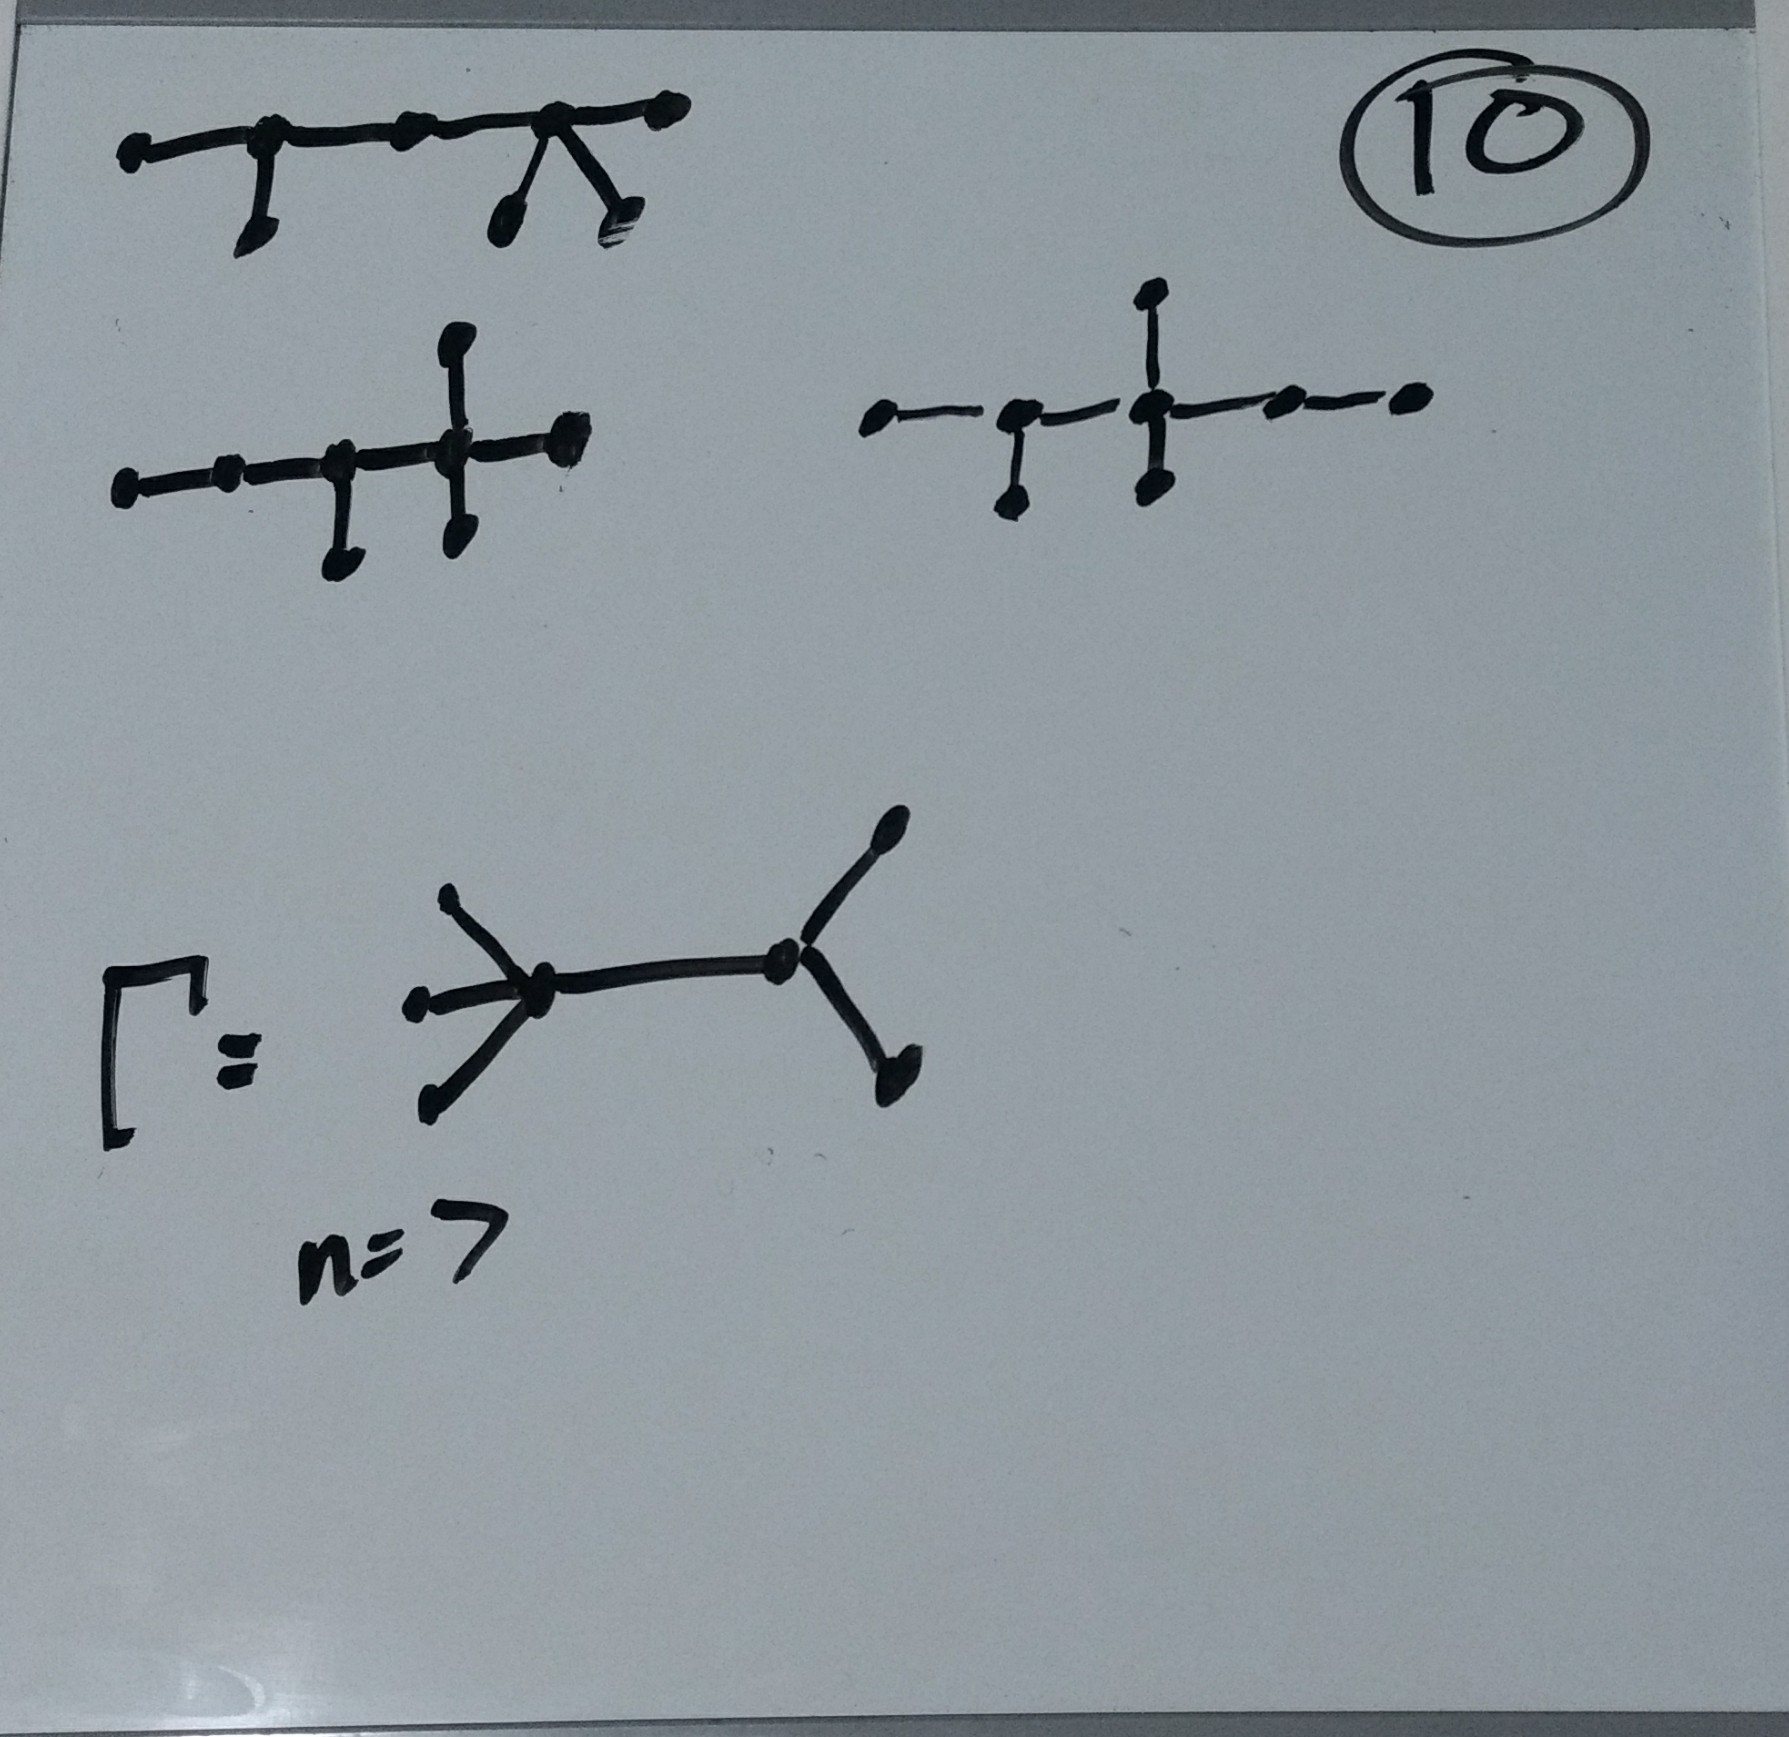 10
Γ =
n = 7